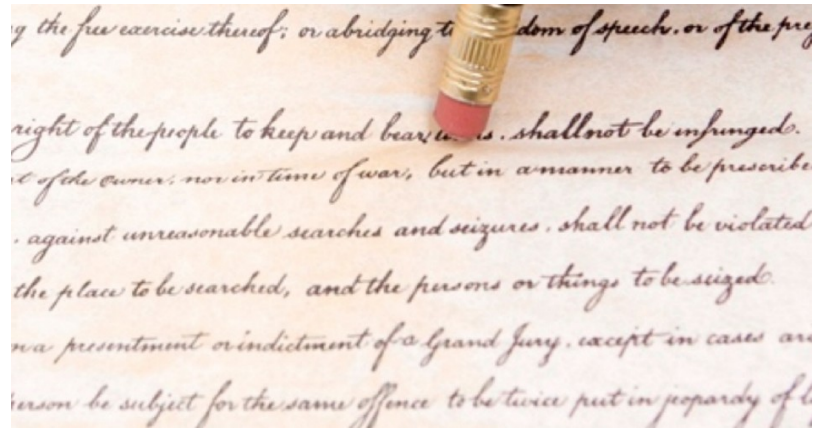 the free exercise thereof; or abridging dom of speech, or of the
right of the people to keep and bear s, shall not be infringed.
of the Owner, nor in time of war, but in a manner to be prescribe
. against unreasonable searches and seizures, shall not be violated
the place to be searched, and the persons or things to be seized.
on a presentment or indictment of a Grand Jury, except in cases
erson be subject for the same offence to be twice put in jeopardy of